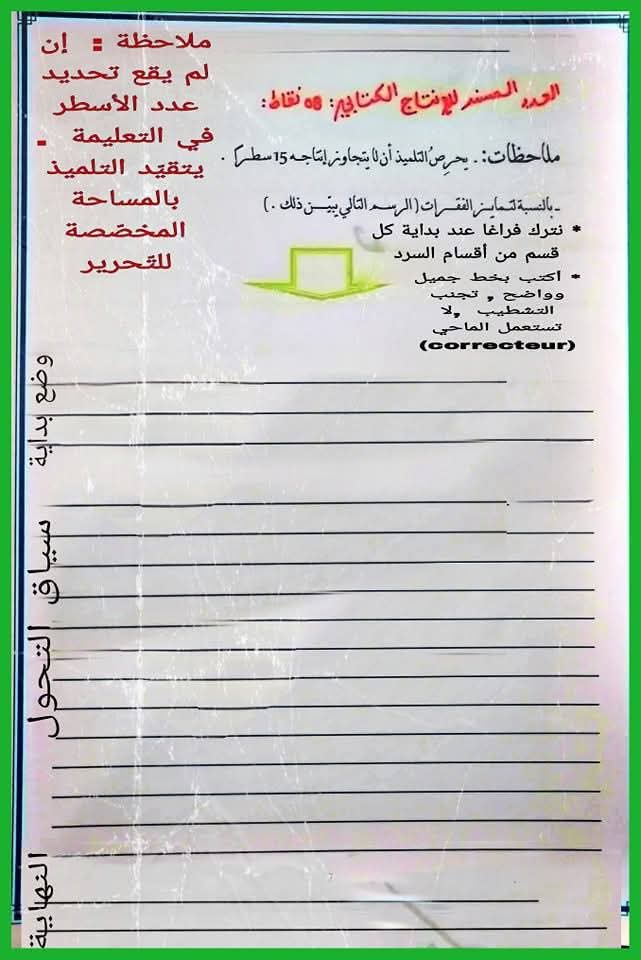 ملاحظة : إن
لم يقع تحديد
عدد الأسطر
في التعليمة .
يتقيّد التلميذ
بالمساحة
المخصّصة
للتّحرير
العدد المسند للإنتاج الكتابي: 08 نقاط:
ملاحظات: . يحرِصُ التلميذ أن لا يتجاوز إنتاجه 15 سطرا .
- بالنسبة لتمايز الفقرات ( الرسم التالي يبيّن ذلك . )
* نترك فراغا عند بداية كل
قسم من أقسام السرد
* أكتب بخط جميل
وواضح , تجنب
التشطيب ,لا
تستعمل الماحي
(correcteur)
وضع بداية
سياق التحول
النهاية